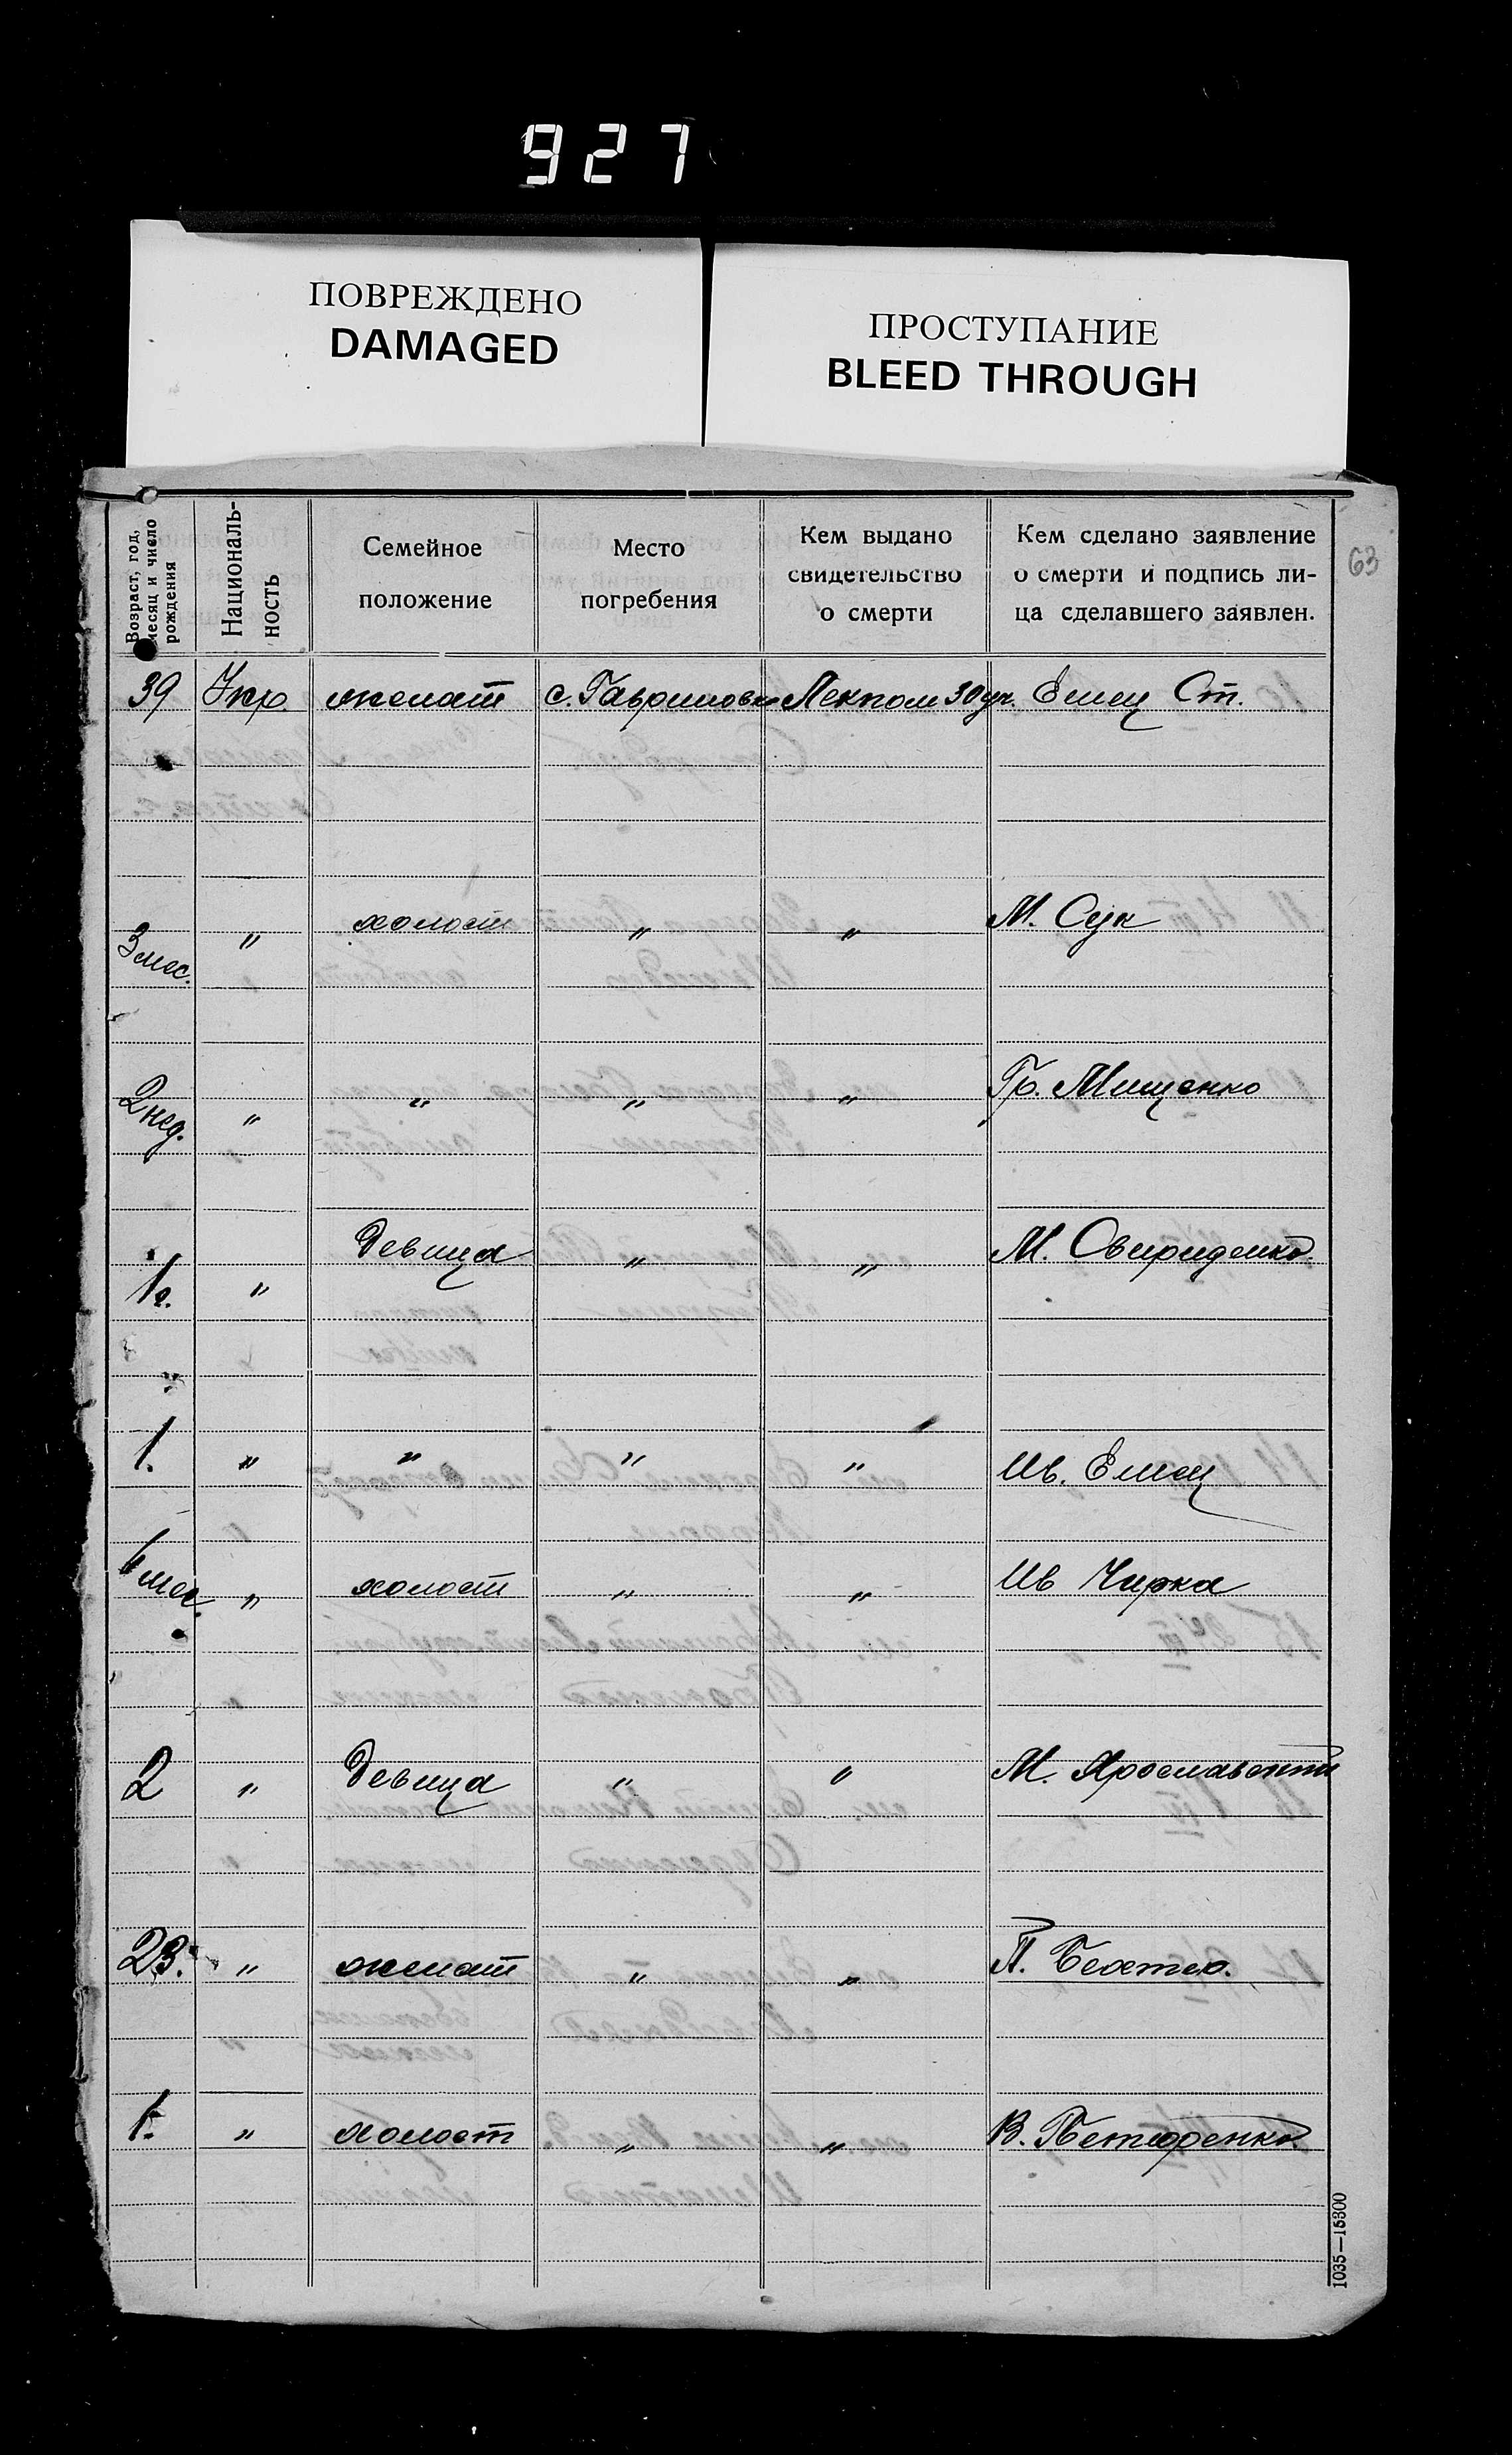 927
ПОВРЕЖДЕНО
DAMAGED
ПРОСТУПАНИЕ
BLEED THROUGH
63
Возраст, год,
месяц и число
рождения
Националь-
ность
Семейное
положение
Место
погребения
Кем выдано
свидетельство
о смерти
Кем сделано заявление
о смерти и подпись ли-
ца сделавшего заявлен.
39 Укр. женат с. Гавриловка Лекпом 30 уч. Емец Ст.
3 мес. " холост " " М. Сук
2 нед. " " " " Гр. Мищенко
1 г. " девица " " М. Свириденко.
1. " " " " Ив. Емец
мес. " холост " " Ив Чирка
2 " девица " " М. Ярославский
23. " женат " " П. Бехтер.
1. " холост " " В.
1035—15300